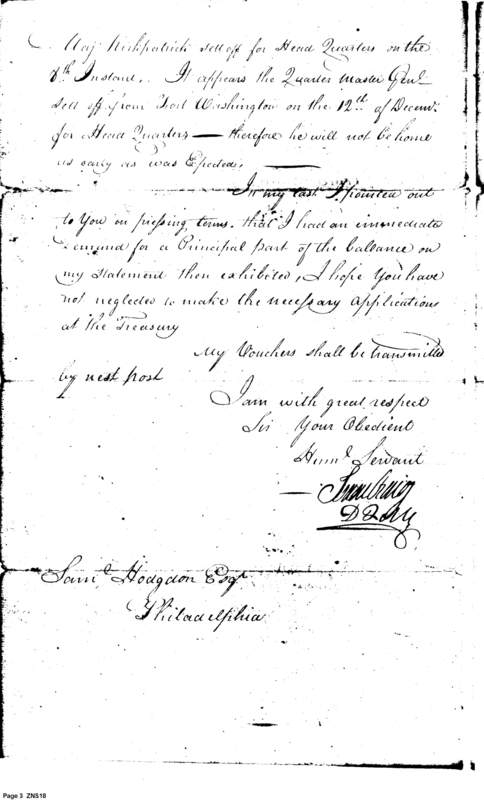 Maj Kirkpatrick sett off for Head Quarters on the
8th Instant. It appears the Quarter Master Genl
sett off from Fort Washington on the 12th of Decemr
for Head Quarters — therefore he will not be home
as early as was Expected. —
In my last I pointed out
to You in pressing terms. that I had an immediate
demand for a Principal part of the ballance on
my Statement then exhibited, I hope You have
not neglected to make the necessary applications
at the Treasury
My Vouchers shall be transmitted
by next post
I am with great respect
Sir Your Obedient
Huml Servant
— Isaac Craig
D Q M
Saml Hodgdon Esqr
Philadelphia
Page 3 ZNS18